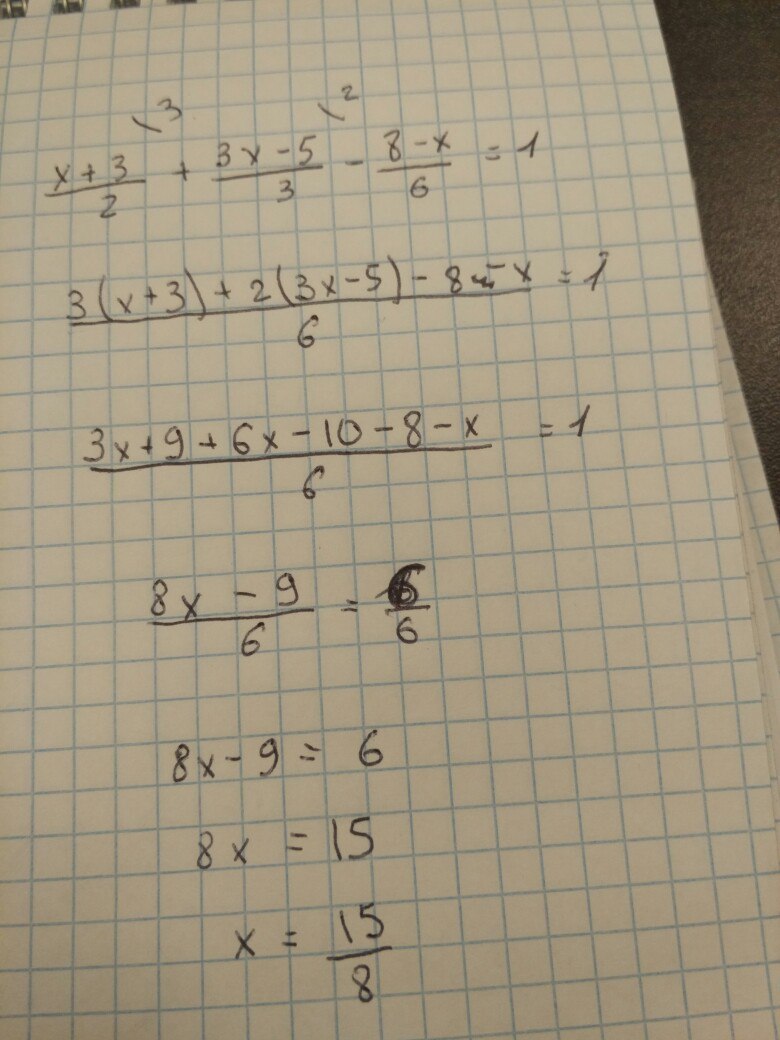 \3 \2
x+3/2 + 3x-5/3 - 8-x/6 = 1
3(x+3)+2(3x-5)-8-x/6 = 1
3x+9+6x-10-8-x/6 = 1
8x-9/6 = 6/6
8x-9= 6
8x = 15
x = 15/8